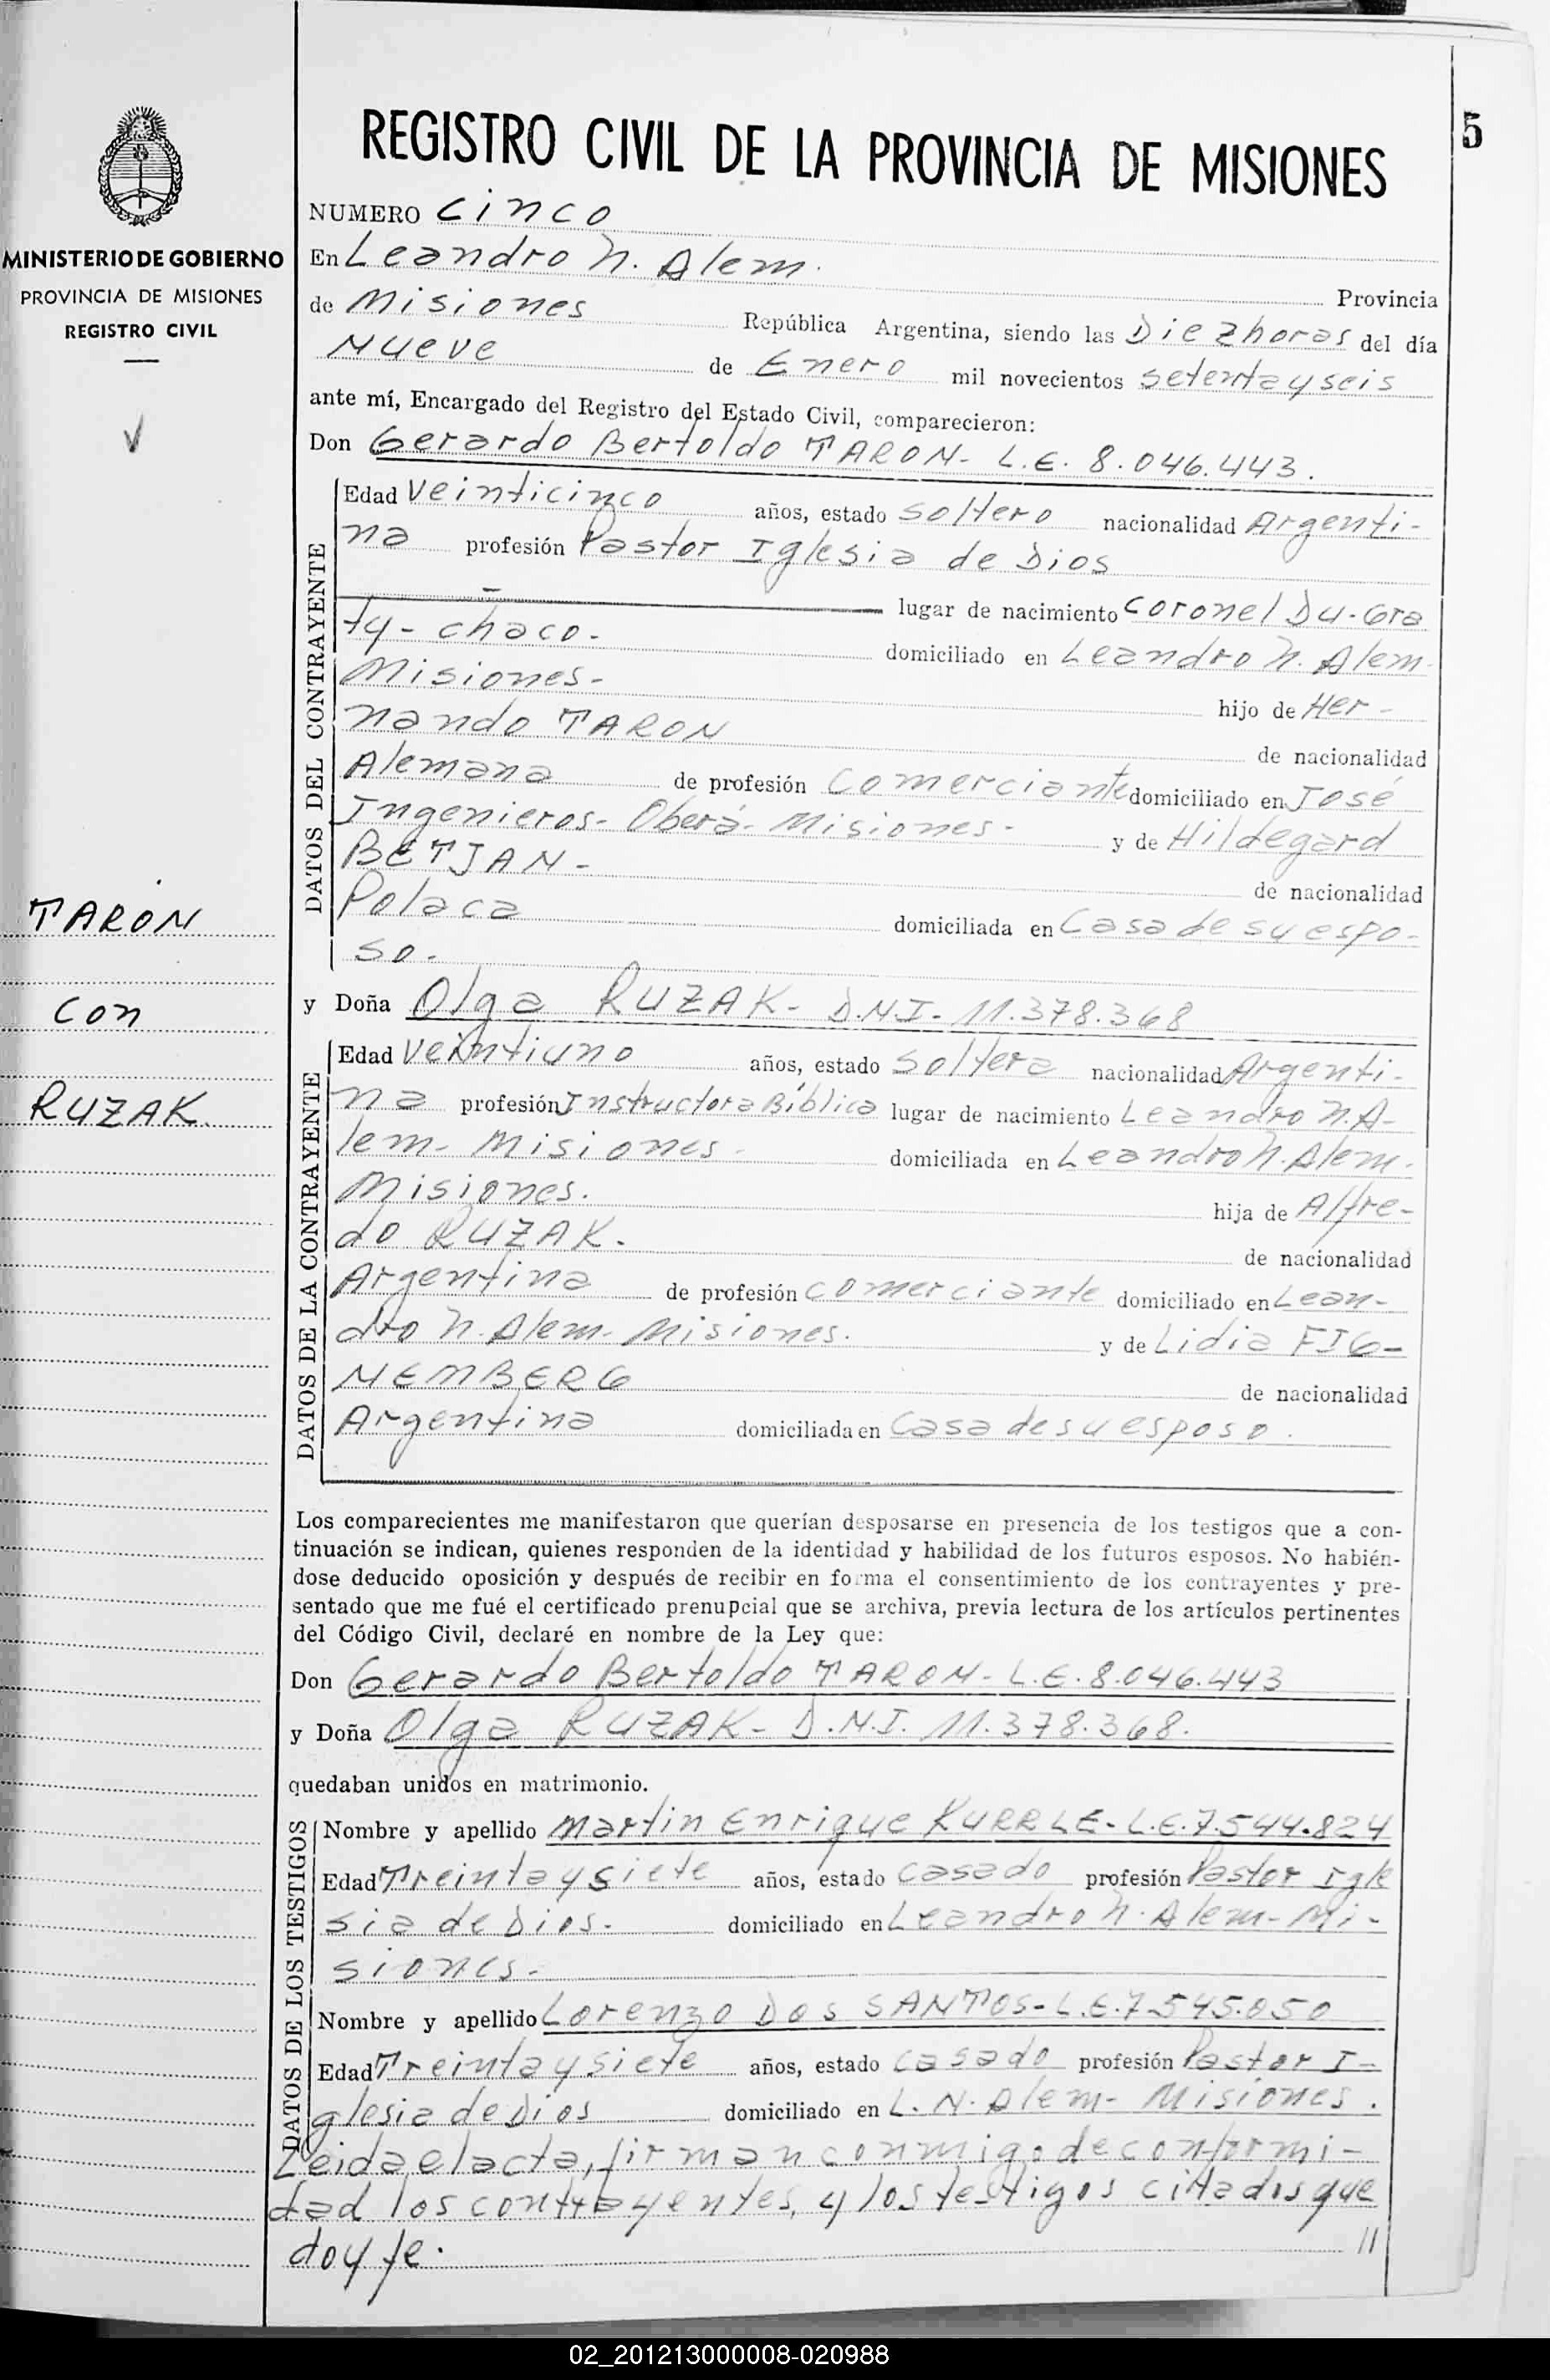 5
REGISTRO CIVIL DE LA PROVINCIA DE MISIONES
MINISTERIO DE GOBIERNO
PROVINCIA DE MISIONES
REGISTRO CIVIL
TARON
con
RUZAK
NUMERO cinco
En Leandro N. Alem. Provincia
de Misiones República Argentina, siendo las Diez horas del día
Nueve de Enero mil novecientos setenta y seis
ante mí, Encargado del Registro del Estado Civil, comparecieron:
Don Gerardo Bertoldo TARON- L.E. 8.046.443.
DATOS DEL CONTRAYENTE
Edad Veinticinco años, estado soltero nacionalidad Argenti-
na profesión Pastor Iglesia de Dios
lugar de nacimiento Coronel Du-Gra
ty- chaco- domiciliado en Leandro N. Alem-
Misiones- hijo de Her-
nando TARON de nacionalidad
Alemana de profesión Comerciante domiciliado en José
Ingenieros- Oberá- Misiones- y de Hildegard
BETJAN- de nacionalidad
Polaca domiciliada en Casa de su espo-
so.
y Doña Olga RUZAK- D.N.I- 11.378.368
DATOS DE LA CONTRAYENTE
Edad Veintiuno años, estado soltera nacionalidad Argenti-
na profesión Instructora Bíblica lugar de nacimiento Leandro N. A-
lem- Misiones- domiciliada en Leandro N. Alem-
Misiones. hija de Alfre-
do RUZAK. de nacionalidad
Argentina de profesión comerciante domiciliado en Lean-
dro N. Alem- Misiones. y de Lidia FIG-
NEMBERG de nacionalidad
Argentina domiciliada en Casa de su esposo.
Los comparecientes me manifestaron que querían desposarse en presencia de los testigos que a con-
tinuación se indican, quienes responden de la identidad y habilidad de los futuros esposos. No habién-
dose deducido oposición y después de recibir en forma el consentimiento de los contrayentes y pre-
sentado que me fué el certificado prenupcial que se archiva, previa lectura de los artículos pertinentes
del Código Civil, declaré en nombre de la Ley que:
Don Gerardo Bertoldo TARON- L.E. 8.046.443
y Doña Olga RUZAK- D.N.I. 11.378.368.
quedaban unidos en matrimonio.
DATOS DE LOS TESTIGOS
Nombre y apellido Martin Enrique KURRLE- L.E. 7.544.824
Edad Treinta y siete años, estado casado profesión Pastor Igle
sia de Dios. domiciliado en Leandro N. Alem- Mi-
siones-
Nombre y apellido Lorenzo DOS SANTOS- L.E. 7.545.050
Edad Treinta y siete años, estado casado profesión Pastor I-
glesia de Dios domiciliado en L. N. Alem- Misiones.
Leida el acta, firman conmigo de conformi-
dad los contrayentes, y los testigos citados que
doy fe. //
02_201213000008-020988